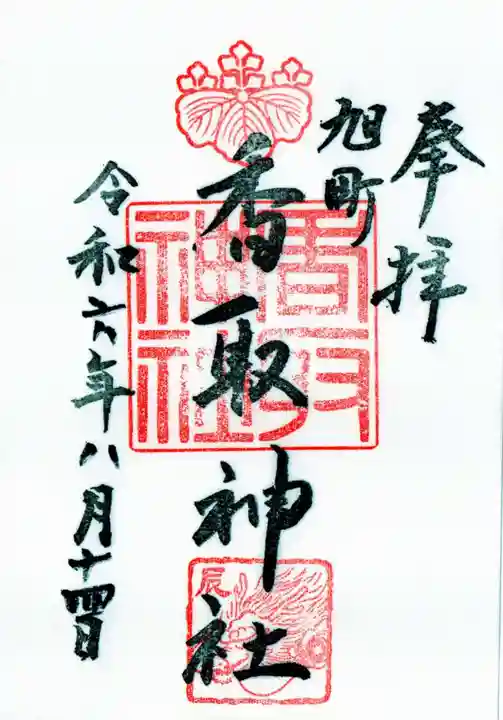 奉拝
旭町
香取神社
令和六年八月十四日
香取
神社
辰